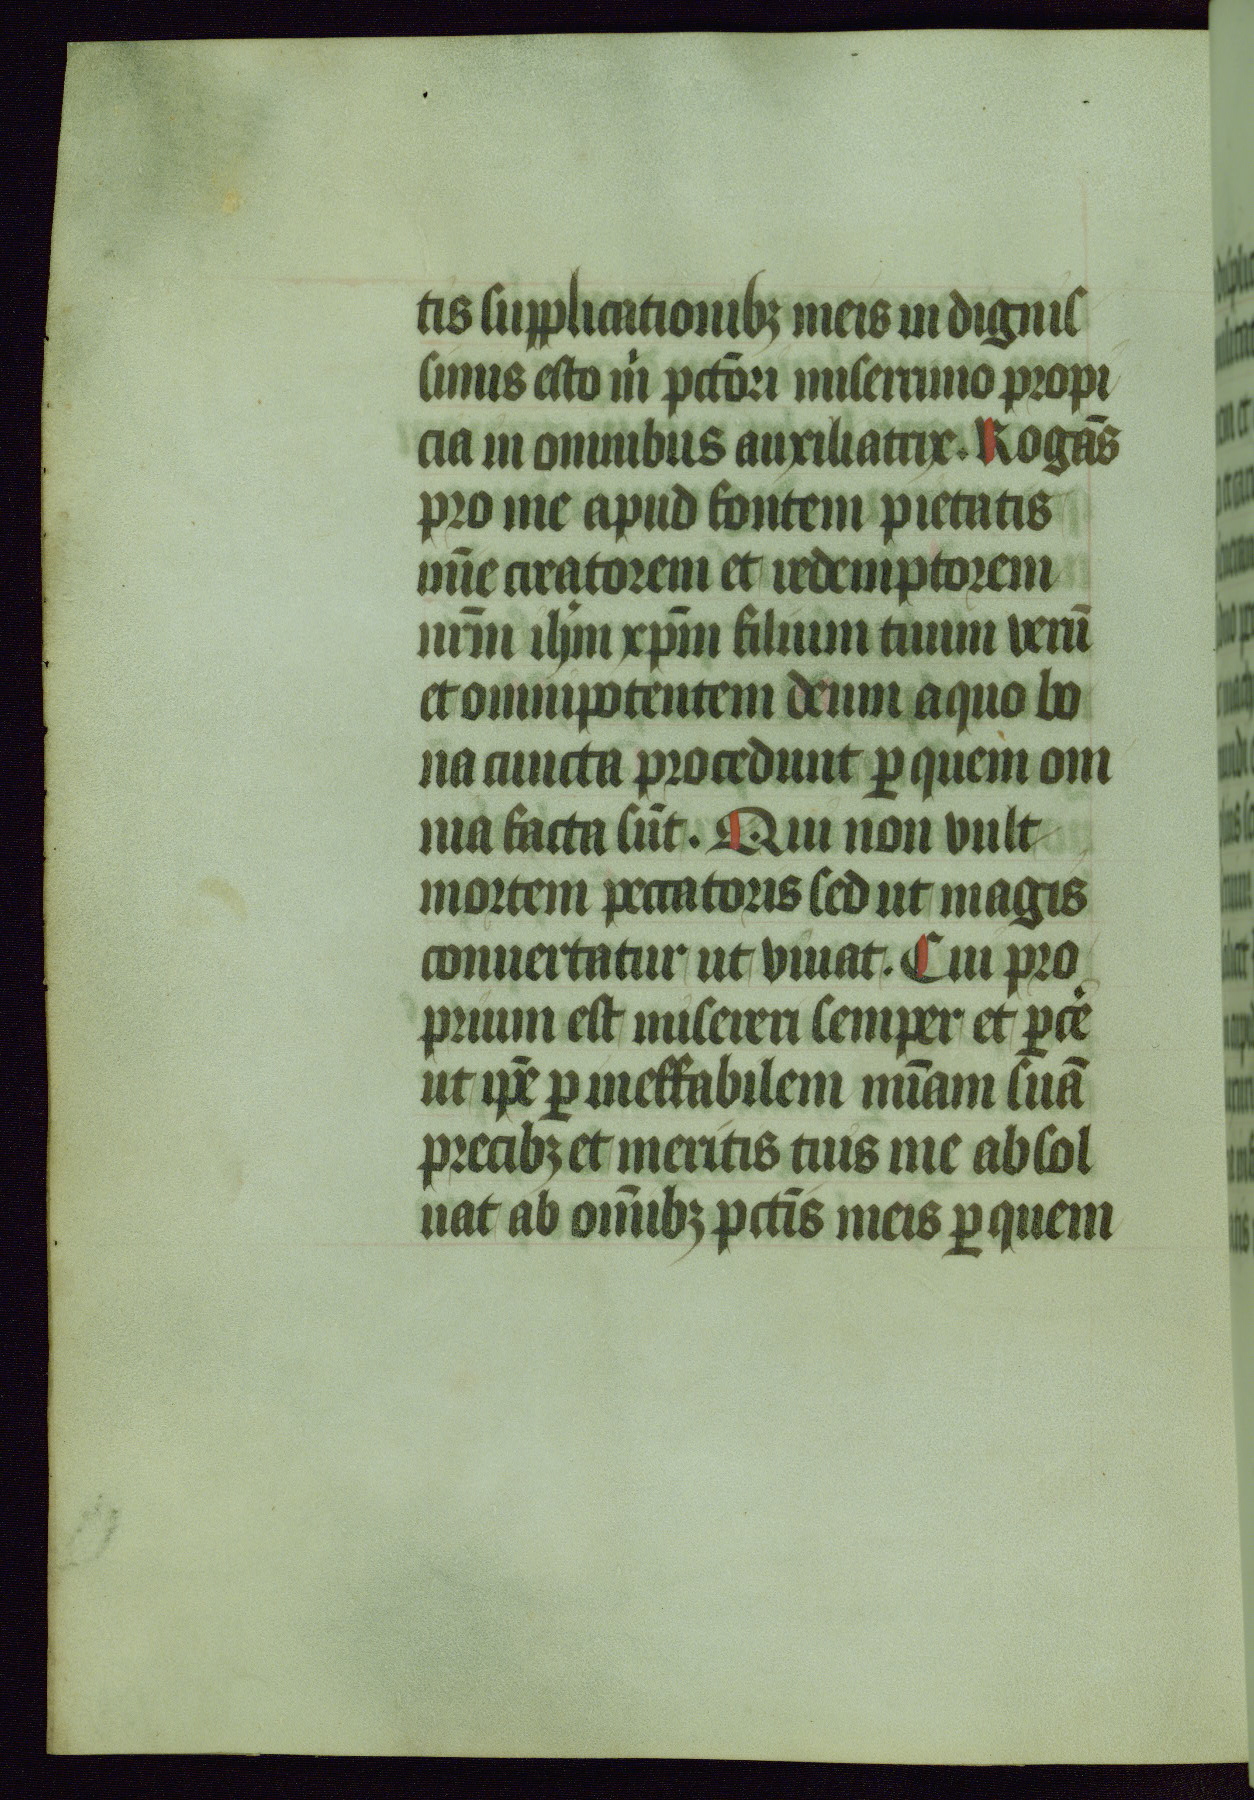 tis supplicationibꝫ meis in dignis
simus esto m̍ pctōri miserrimo propi
cia in omnibus auxiliatrix. Rogās
pro me apud fontem pietatis
mīe creatorem et redemptorem
nrm̄ ihm̄ xpm̄ filium tuum verū
et omnipotentem deum a quo bo
na cuncta procedunt ꝑ quem om
nia facta sūt. Qui non vult
mortem peccatoris sed ut magis
conuertatur ut viuat. Cui pro
prium est misereri semper et ꝑcē
ut ipē ꝑ ineffabilem mīam suā
precibꝫ et meritis tuis me absol
uat ab om̄ibꝫ pctīs meis ꝑ quem